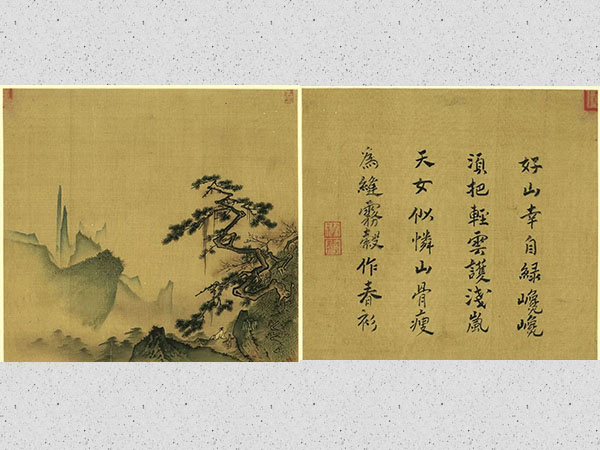 好山幸自綠巉巉
湏把輕雲護淺嵐
天女似憐山骨瘦
為縫霧縠作春衫